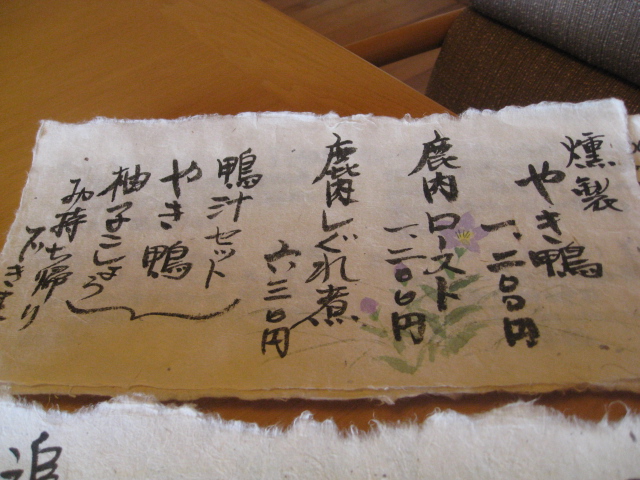 燻製
やき鴨
一、二〇〇円
鹿肉ロースト
一、二〇〇円
鹿肉しぐれ煮
六三〇円
鴨汁セット
やき鴨
柚子こしょう
お持ち帰り
できま
追